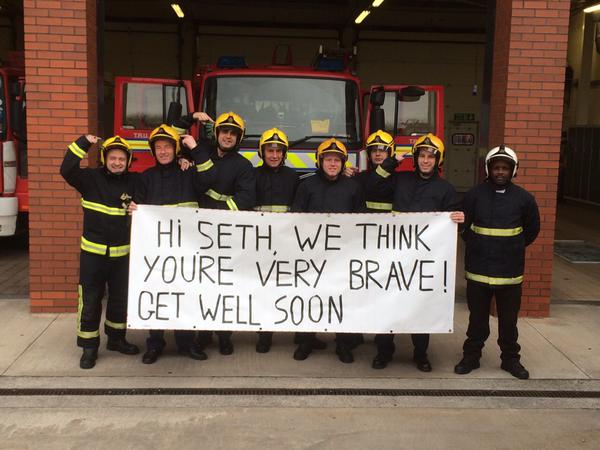 HI SETH, WE THINK
YOU'RE VERY BRAVE!
GET WELL SOON
TRU